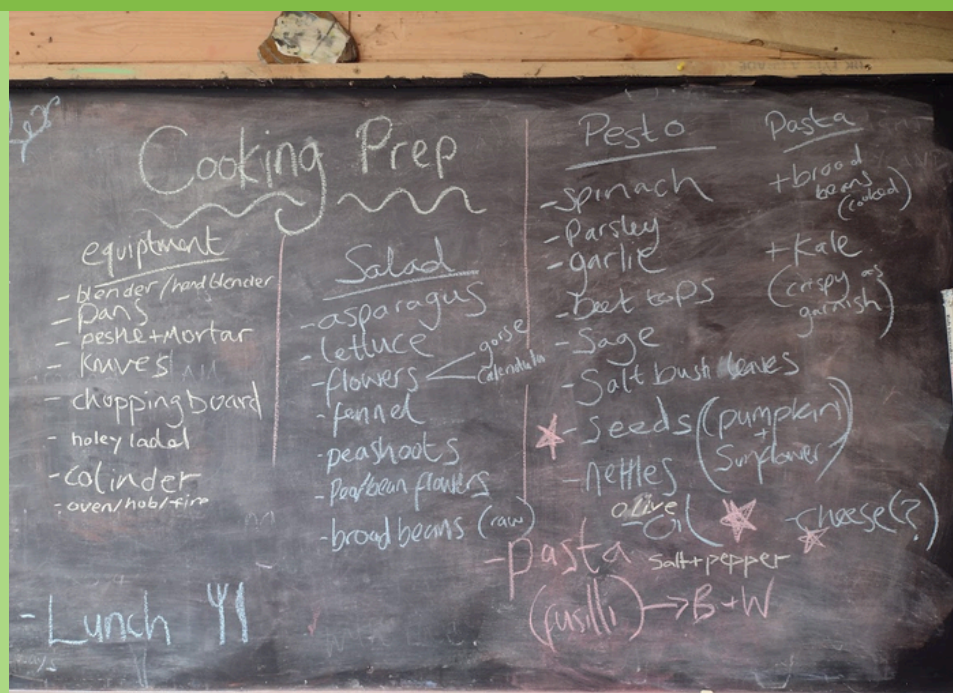 Cooking Prep
equiptment
- blender/handblender
- pans
- pestle+Mortar
- knives
- chopping board
- holey ladel
- colinder
- oven/hob/fire
- Lunch
Salad
- asparagus
- lettuce
- flowers
gorse
calendula
- fennel
- peashoots
- Pea/bean flowers
- broad beans (raw)
Pesto
- spinach
- Parsley
- garlic
- Beet tops
- Sage
- Salt bush leaves
- Seeds (pumpkin
+
Sunflower)
- nettles
olive
- oil
- cheese(?)
salt+pepper
- pasta
(fusilli) → B+W
Pasta
+ broad
beans
(cooked)
+ kale
(crispy as
garnish)